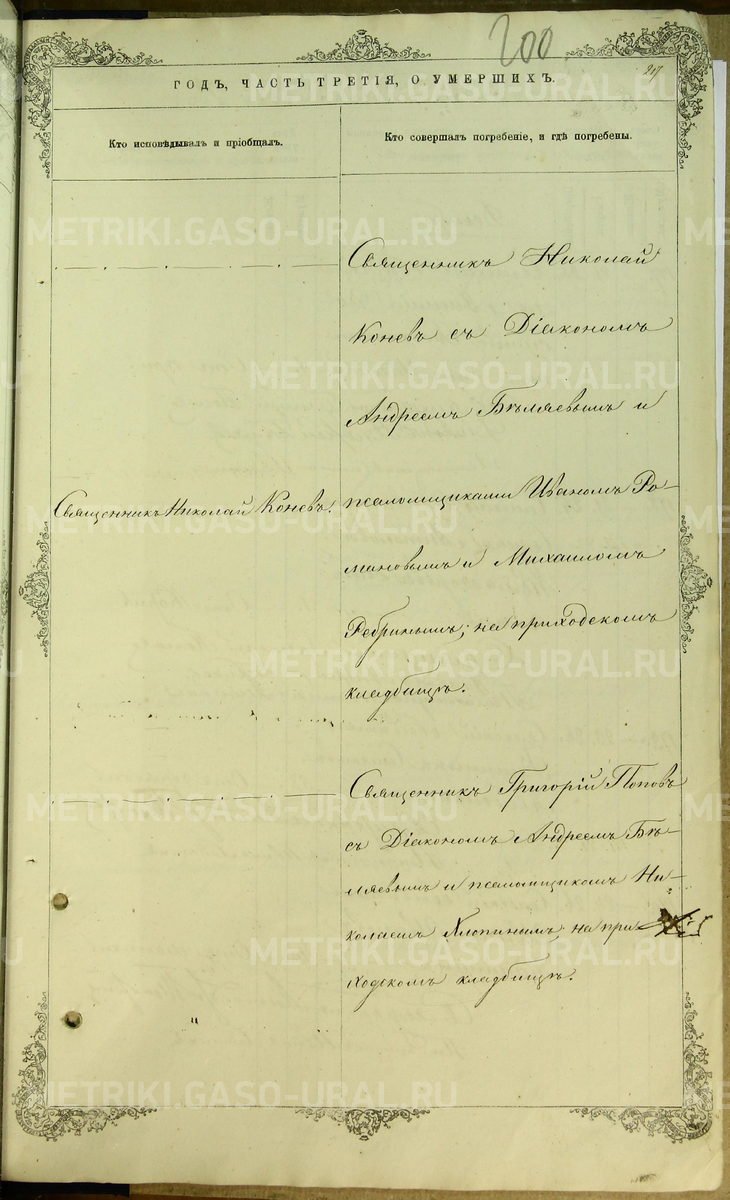 200
217
ГОДЪ, ЧАСТЬ ТРЕТІЯ, О УМЕРШИХЪ.
Кто исповѣдывалъ и пріобщалъ.
Кто совершалъ погребеніе, и гдѣ погребены.
Священникъ Николай
Коневъ съ Діакономъ
Андреемъ Бѣляевымъ и
Священникъ Николай Коневъ.
псаломщиками Иваномъ Ро-
мановымъ и Михаиломъ
Ребринымъ; на приходскомъ
кладбищѣ.
Священникъ Григорій Поповъ
съ Діакономъ Андреемъ Бѣ-
ляевымъ и псаломщикомъ Ни-
колаемъ Хлопинымъ, на при
ходскомъ кладбищѣ.
METRIKI.GASO-URAL.RU